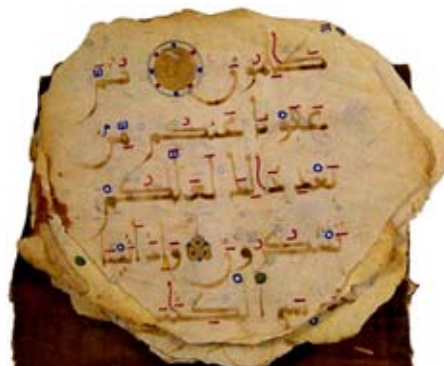 ظَٰلِمُونَ ثُمَّ
عَفَوْنَا عَنكُم مِّنْ
بَعْدِ ذَٰلِكَ لَعَلَّكُمْ
تَشْكُرُونَ وَإِذْ ءَاتَيْنَا
مُوسَى الْكِتَٰبَ